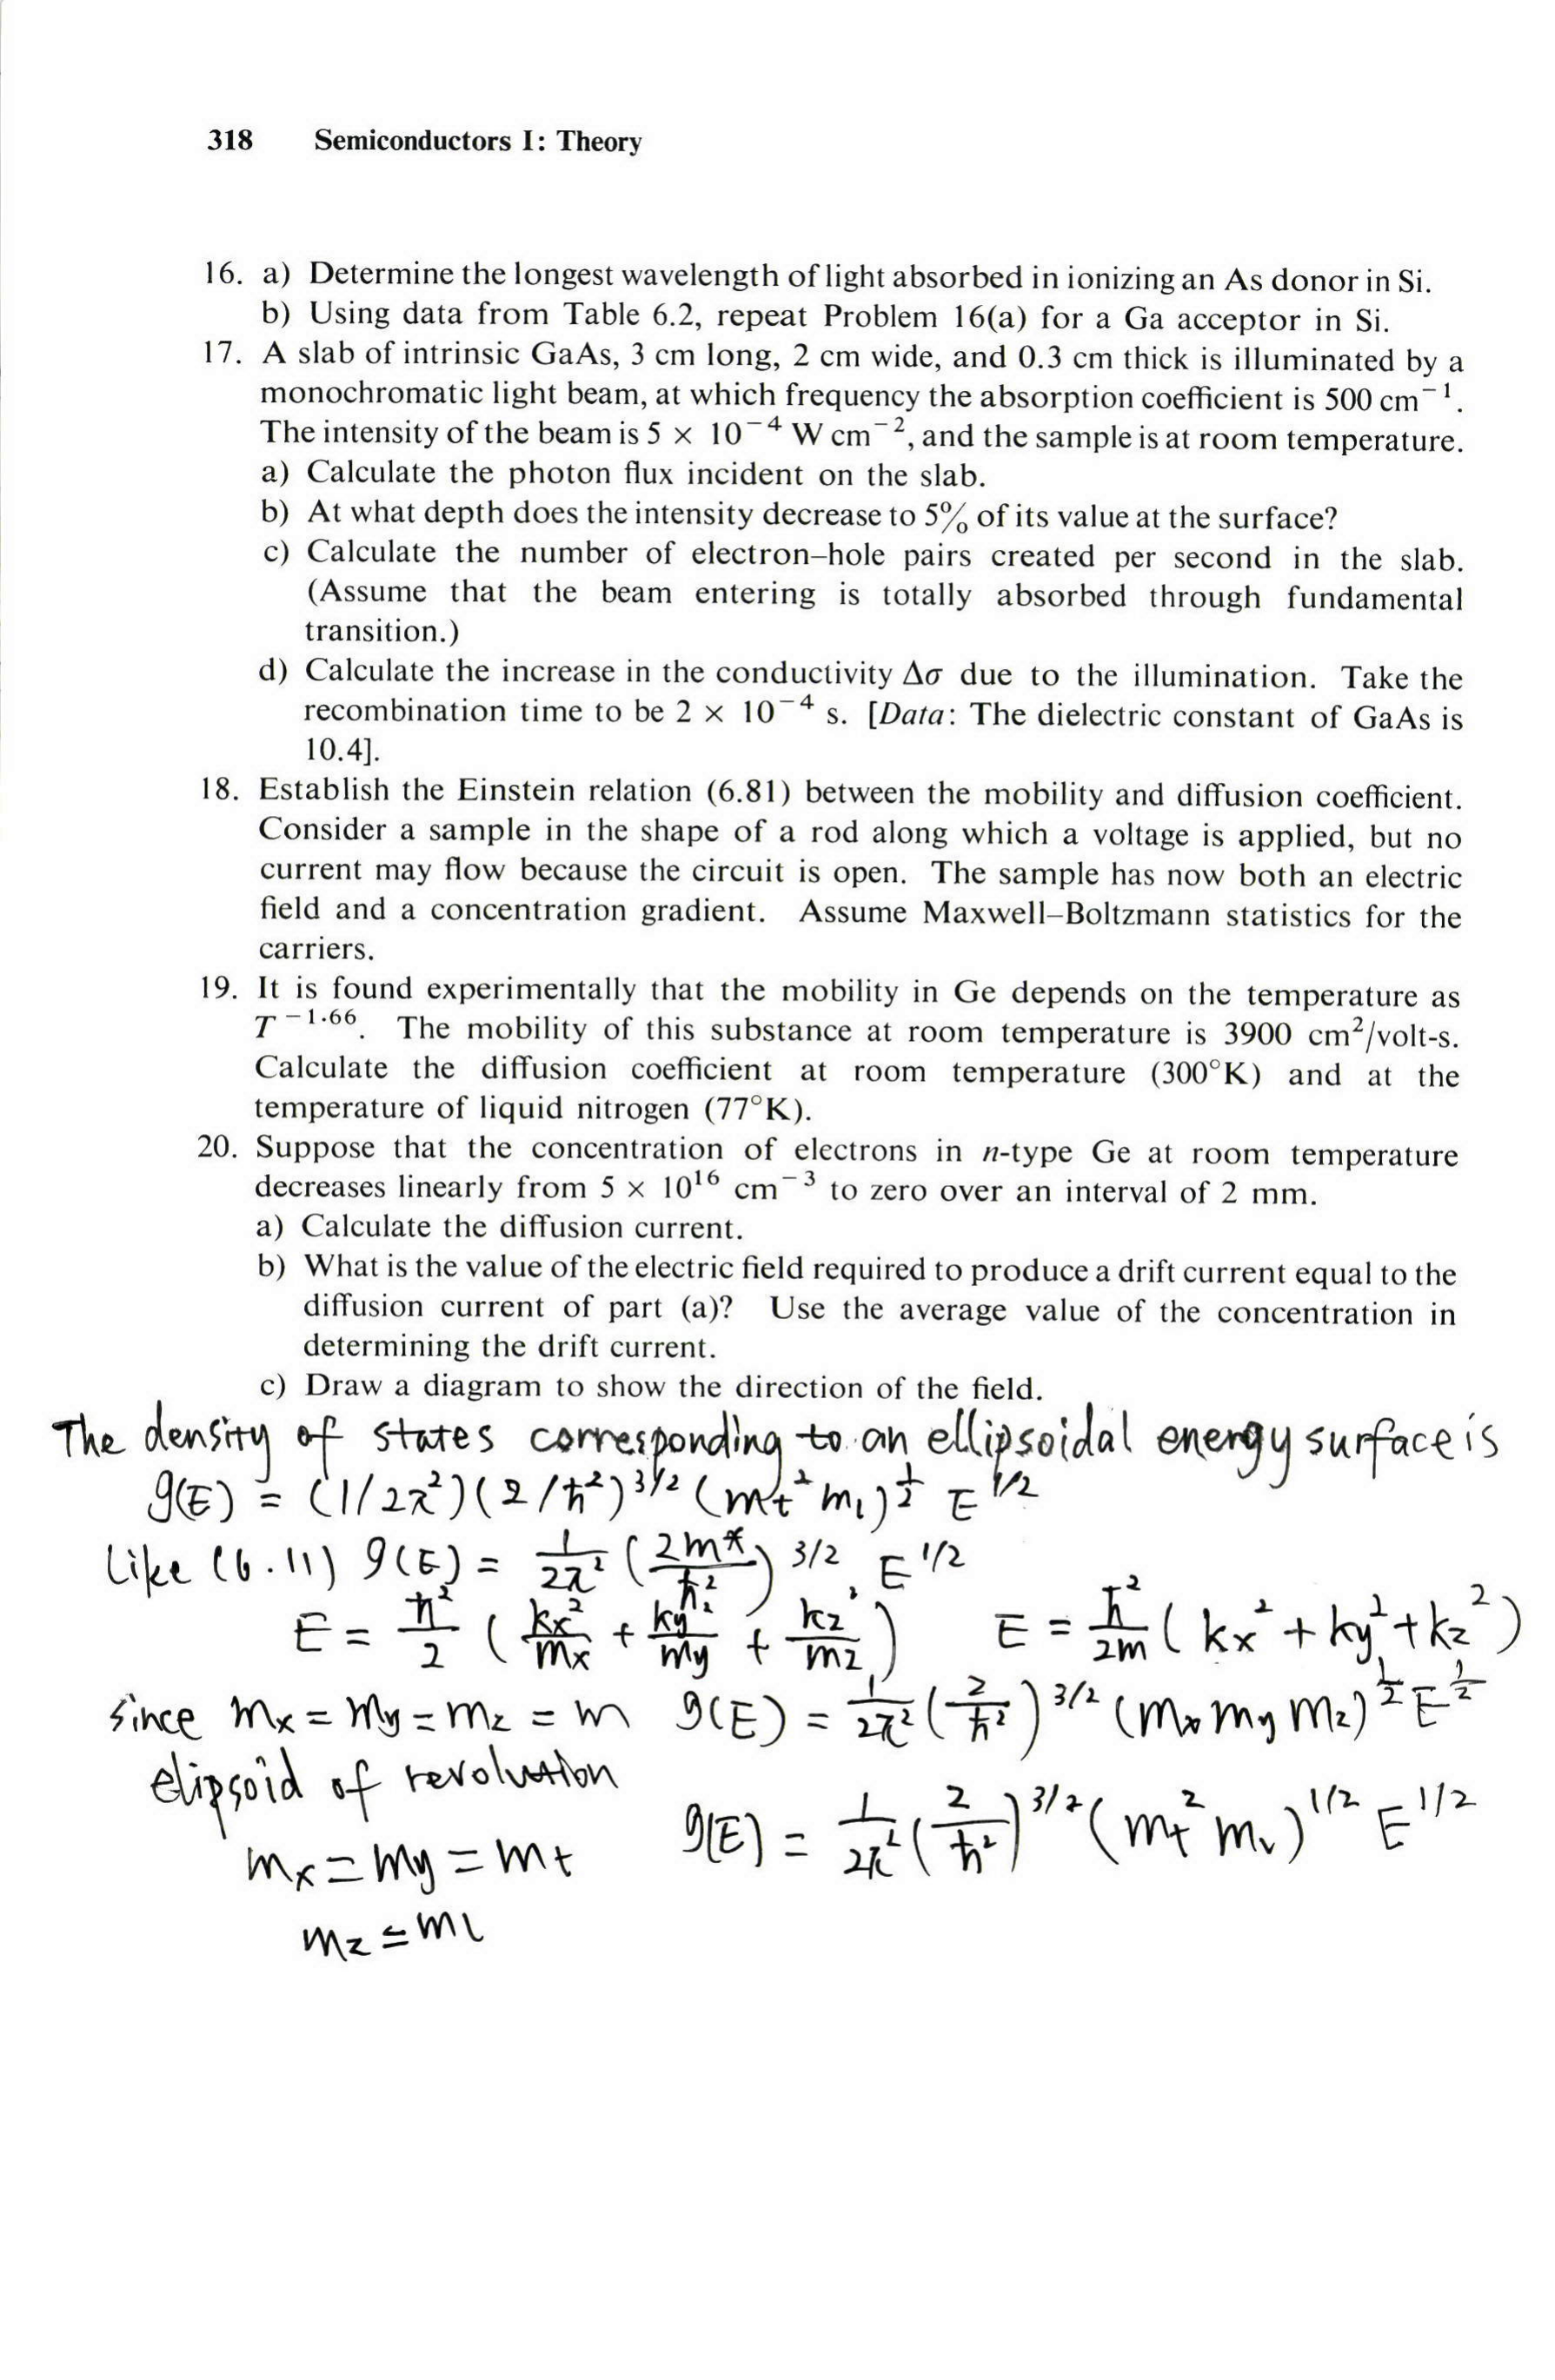 318 Semiconductors I: Theory
16. a) Determine the longest wavelength of light absorbed in ionizing an As donor in Si.
b) Using data from Table 6.2, repeat Problem 16(a) for a Ga acceptor in Si.
17. A slab of intrinsic GaAs, 3 cm long, 2 cm wide, and 0.3 cm thick is illuminated by a
monochromatic light beam, at which frequency the absorption coefficient is 500 cm⁻¹.
The intensity of the beam is 5 × 10⁻⁴ W cm⁻², and the sample is at room temperature.
a) Calculate the photon flux incident on the slab.
b) At what depth does the intensity decrease to 5% of its value at the surface?
c) Calculate the number of electron–hole pairs created per second in the slab.
(Assume that the beam entering is totally absorbed through fundamental
transition.)
d) Calculate the increase in the conductivity Δσ due to the illumination. Take the
recombination time to be 2 × 10⁻⁴ s. [Data: The dielectric constant of GaAs is
10.4].
18. Establish the Einstein relation (6.81) between the mobility and diffusion coefficient.
Consider a sample in the shape of a rod along which a voltage is applied, but no
current may flow because the circuit is open. The sample has now both an electric
field and a concentration gradient. Assume Maxwell–Boltzmann statistics for the
carriers.
19. It is found experimentally that the mobility in Ge depends on the temperature as
T⁻¹·⁶⁶. The mobility of this substance at room temperature is 3900 cm²/volt-s.
Calculate the diffusion coefficient at room temperature (300°K) and at the
temperature of liquid nitrogen (77°K).
20. Suppose that the concentration of electrons in n-type Ge at room temperature
decreases linearly from 5 × 10¹⁶ cm⁻³ to zero over an interval of 2 mm.
a) Calculate the diffusion current.
b) What is the value of the electric field required to produce a drift current equal to the
diffusion current of part (a)? Use the average value of the concentration in
determining the drift current.
c) Draw a diagram to show the direction of the field.
The density of states corresponding to an ellipsoidal energy surface is
g(E) = (1/2π²)(2/ħ²)^3/2 (mt² ml)^1/2 E^1/2
like (6.11) g(E) = 1/2π² (2m*/ħ²)^3/2, E^1/2
E = ħ²/2 (kx²/mx + ky²/my + kz²/mz) E = ħ²/2m (kx² + ky² + kz²)
since mx = my = mz = m g(E) = 1/2π² (2/ħ²)^3/2 (mx my mz)^1/2 E^1/2
elipsoid of revolution
mx = my = mt g(E) = 1/2π² (2/ħ²)^3/2 (mt² ml)^1/2 E^1/2
mz = ml